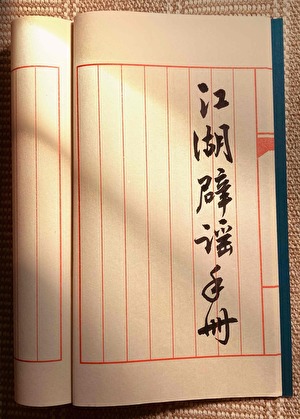 江湖辟谣手册